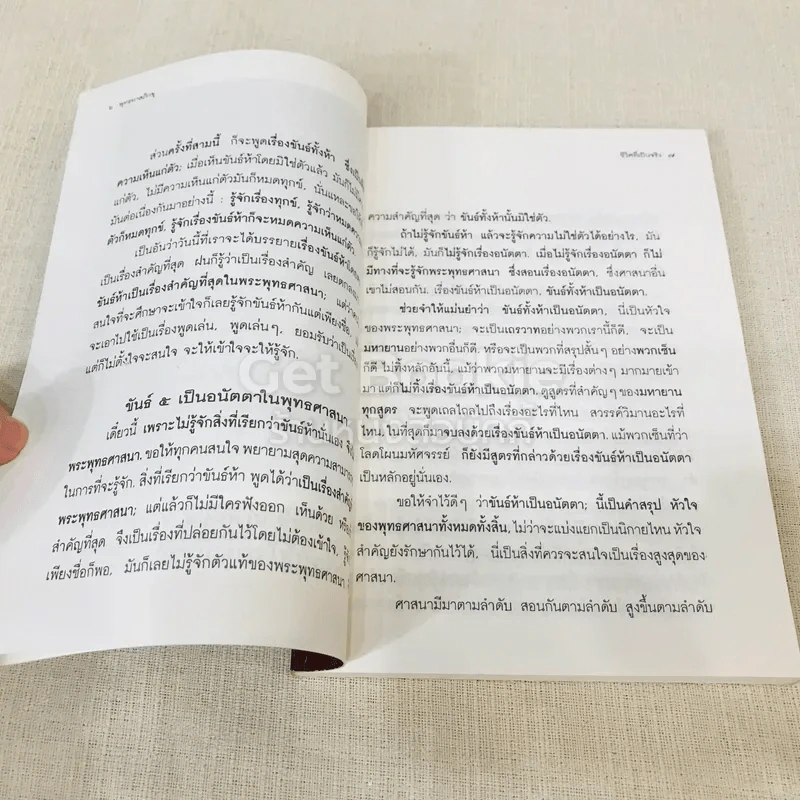 ๖ พุทธทาสภิกขุ
ส่วนครั้งที่สามนี้ ก็จะพูดเรื่องขันธ์ทั้งห้า ซึ่งเป็น
ความเห็นแก่ตัว; เมื่อเห็นขันธ์ห้าโดยมิใช่ตัวแล้ว มันก็ไม่
แก่ตัว, ไม่มีความเห็นแก่ตัวมันก็หมดทุกข์, นั่นแหละขอให้
มันต่อเนื่องกันมาอย่างนี้ : รู้จักเรื่องทุกข์, รู้จักว่าหมดความ
ตัวก็หมดทุกข์, รู้จักเรื่องขันธ์ห้าก็จะหมดความเห็นแก่ตัว
เป็นอันว่าวันนี้ที่เราจะได้บรรยายเรื่องขันธ์ห้าโดย
เป็นเรื่องสำคัญที่สุด ฝนก็รู้ว่าเป็นเรื่องสำคัญ เลยตก
ขันธ์ห้าเป็นเรื่องสำคัญที่สุดในพระพุทธศาสนา; แต่ว่า
สนใจที่จะศึกษาจะเข้าใจก็เลยรู้จักขันธ์ห้ากันแต่เพียงชื่อ,
จะเอาไปใช้เป็นเรื่องพูดเล่น, พูดเล่นๆ, ยอมรับว่าเป็น
แต่ก็ไม่ตั้งใจจะสนใจ จะให้เข้าใจจะให้รู้จัก.
ขันธ์ ๕ เป็นอนัตตาในพุทธศาสนา
เดี๋ยวนี้ เพราะไม่รู้จักสิ่งที่เรียกว่าขันธ์ห้านั่นเอง
พระพุทธศาสนา. ขอให้ทุกคนสนใจ พยายามสุดความสามารถ
ในการที่จะรู้จัก. สิ่งที่เรียกว่าขันธ์ห้า พูดได้ว่าเป็นเรื่องสำคัญ
พระพุทธศาสนา; แต่แล้วก็ไม่มีใครฟังออก เห็นด้วย
สำคัญที่สุด จึงเป็นเรื่องที่ปล่อยกันไว้โดยไม่ต้องเข้าใจ,
เพียงชื่อก็พอ, มันก็เลยไม่รู้จักตัวแท้ของพระพุทธศาสนา
ชีวิตที่เป็นจริง ๗
ความสำคัญที่สุด ว่า ขันธ์ทั้งห้านั้นมิใช่ตัว.
ถ้าไม่รู้จักขันธ์ห้า แล้วจะรู้จักความไม่ใช่ตัวได้อย่างไร, มัน
ก็รู้จักไม่ได้, มันก็ไม่รู้จักเรื่องอนัตตา, เมื่อไม่รู้จักเรื่องอนัตตา ก็ไม่
มีทางที่จะรู้จักพระพุทธศาสนา ซึ่งสอนเรื่องอนัตตา, ซึ่งศาสนาอื่น
เขาไม่สอนกัน, เรื่องขันธ์ห้าเป็นอนัตตา, ขันธ์ทั้งห้าเป็นอนัตตา.
ช่วยจำให้แม่นยำว่า ขันธ์ทั้งห้าเป็นอนัตตา, นี่เป็นหัวใจ
ของพระพุทธศาสนา; จะเป็นเถรวาทอย่างพวกเรานี้ก็ดี, จะเป็น
มหายานอย่างพวกอื่นก็ดี, หรือจะเป็นพวกที่สรุปสั้นๆ อย่างพวกเซ็น
ก็ดี ไม่ทิ้งหลักอันนี้, แม้ว่าพวกมหายานจะมีเรื่องต่างๆ มากมายเข้า
มา แต่ก็ไม่ทิ้งเรื่องขันธ์ห้าเป็นอนัตตา, ดูสูตรที่สำคัญๆ ของมหายาน
ทุกสูตร จะพูดเถลไถลไปถึงเรื่องอะไรที่ไหน สวรรค์วิมานอะไรที่
ไหน, ในที่สุดก็มาจบลงด้วยเรื่องขันธ์ห้าเป็นอนัตตา, แม้พวกเซ็นที่ว่า
โลดโผนมหัศจรรย์ ก็ยังมีสูตรที่กล่าวด้วยเรื่องขันธ์ห้าเป็นอนัตตา
เป็นหลักอยู่นั่นเอง.
ขอให้จำไว้ดีๆ ว่าขันธ์ห้าเป็นอนัตตา; นี้เป็นคำสรุป หัวใจ
ของพุทธศาสนาทั้งหมดทั้งสิ้น, ไม่ว่าจะแบ่งแยกเป็นนิกายไหน หัวใจ
สำคัญยังรักษากันไว้ได้, นี่เป็นสิ่งที่ควรจะสนใจเป็นเรื่องสูงสุดของ
ศาสนา.
ศาสนามีมาตามลำดับ สอนกันตามลำดับ สูงขึ้นตามลำดับ